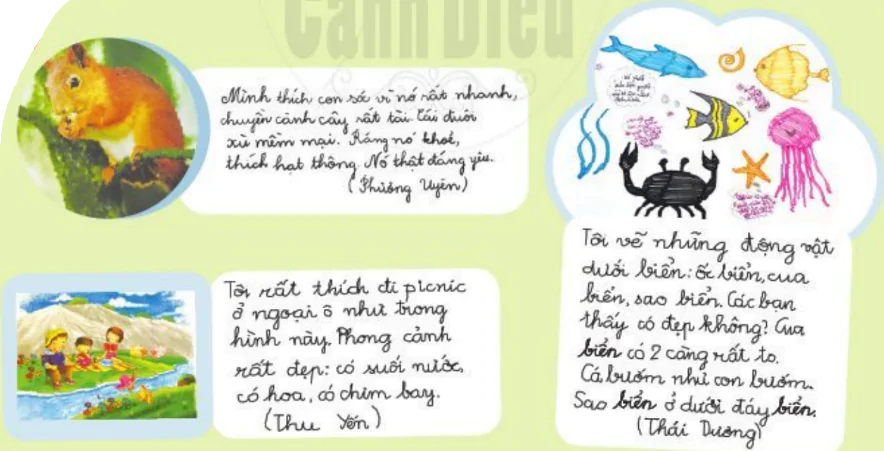 Cánh Diều
Mình thích con sóc vì nó rất nhanh,
chuyền cành cây rất tài. Cái đuôi
xù mềm mại. Răng nó khoẻ,
thích hạt thông. Nó thật đáng yêu.
(Phương Uyên)
Tôi rất thích đi picnic
ở ngoại ô như trong
hình này. Phong cảnh
rất đẹp: có suối nước,
có hoa, có chim bay.
(Thu Yến)
Tôi vẽ những động vật
dưới biển: ốc biển, cua
biển, sao biển. Các bạn
thấy có đẹp không? Cua
biển có 2 càng rất to.
Cá bướm như con bướm.
Sao biển ở dưới đáy biển.
(Thái Dương)